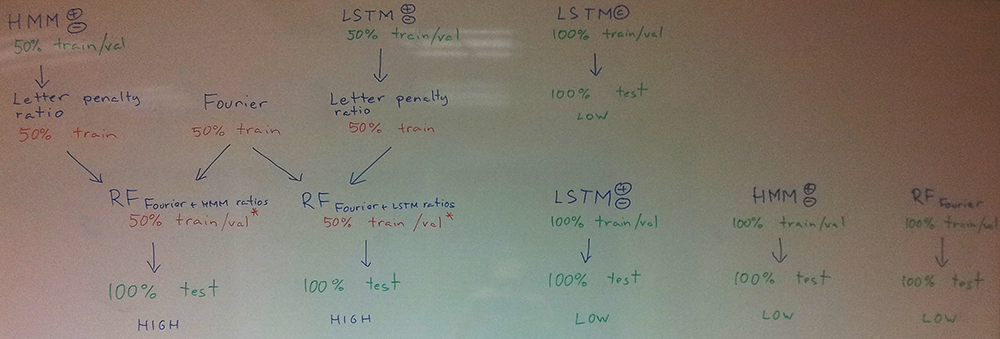 HMM ⊕
⊖
50% train/val
Letter penalty
ratio
50% train
Fourier
50% train
LSTM ⊕
⊖
50% train/val
Letter penalty
ratio
50% train
RF Fourier + HMM ratios
50% train/val*
100% test
HIGH
RF Fourier + LSTM ratios
50% train/val*
100% test
HIGH
LSTM ©
100% train/val
100% test
LOW
LSTM ⊕
⊖
100% train/val
100% test
LOW
HMM ⊕
⊖
100% train/val
100% test
LOW
RF Fourier
100% train/val
100% test
LOW